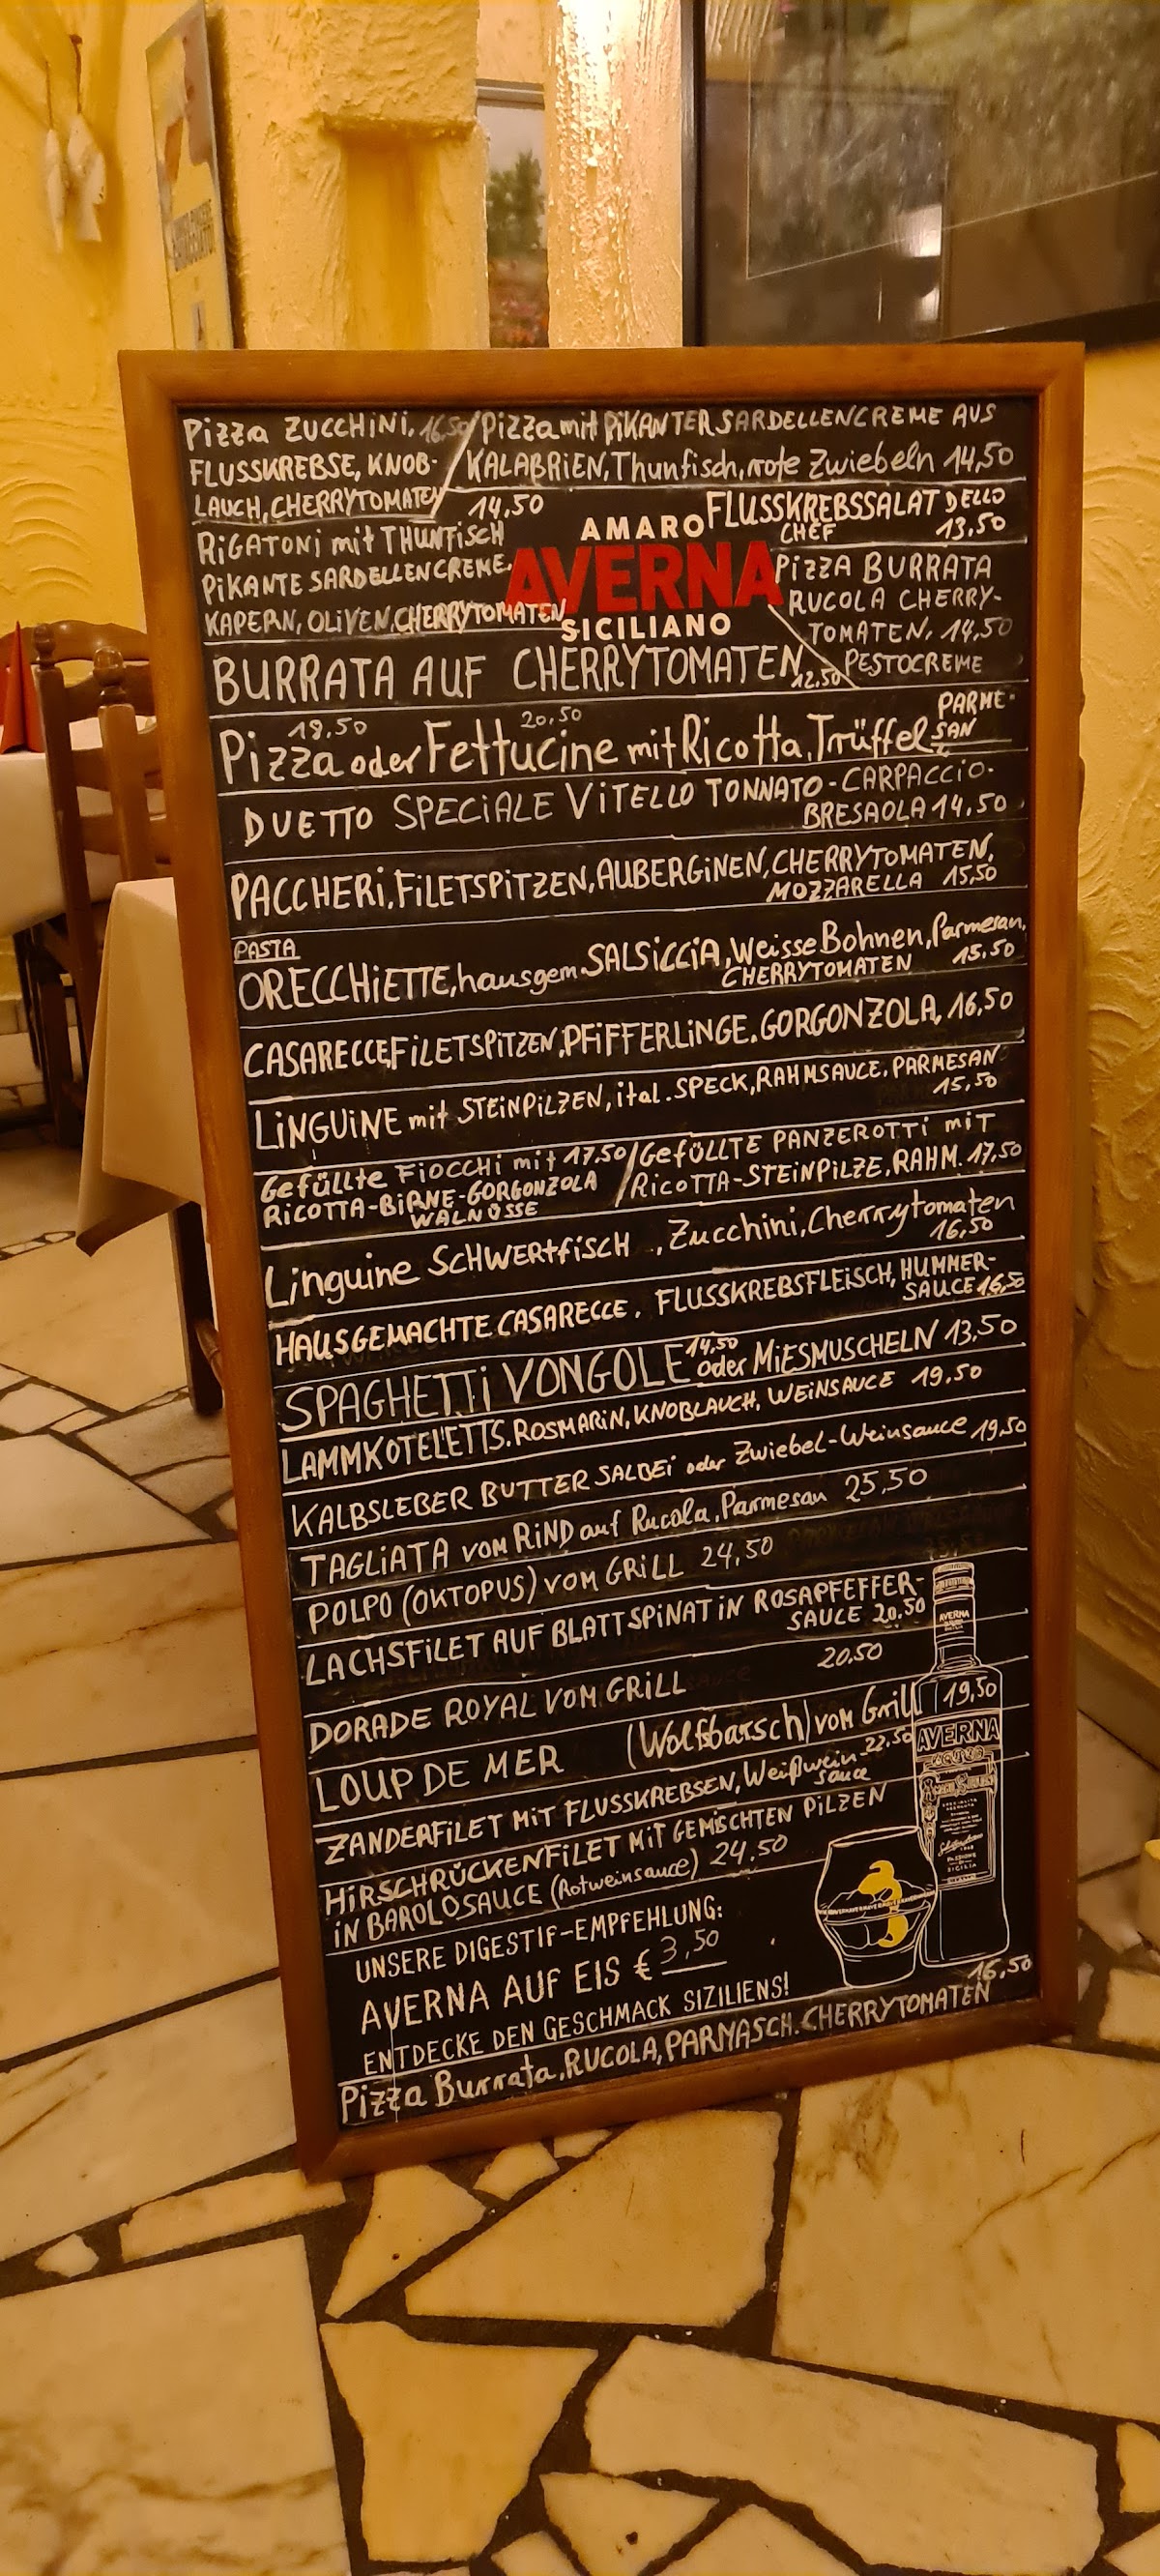 Pizza ZUCCHINI, 16,50
FLUSSKREBSE, KNOB-
LAUCH, CHERRYTOMATEN
Pizza mit PIKANTER SARDELLENCREME AUS
KALABRIEN, Thunfisch, rote Zwiebeln 14,50
RIGATONI mit THUNFISCH 14,50
PIKANTE SARDELLENCREME,
KAPERN, OLIVEN, CHERRYTOMATEN
AMARO
AVERNA
SICILIANO
FLUSSKREBSSALAT DELLO
CHEF 13,50
PIZZA BURRATA
RUCOLA CHERRY-
TOMATEN, 14,50
PESTOCREME
BURRATA AUF CHERRYTOMATEN 12,50
19,50 20,50 PARME-
Pizza oder Fettucine mit Ricotta, Trüffel, SAN
DUETTO SPECIALE VITELLO TONNATO-CARPACCIO-
BRESAOLA 14,50
PACCHERI, FILETSPITZEN, AUBERGINEN, CHERRYTOMATEN,
MOZZARELLA 15,50
PASTA
ORECCHIETTE, hausgem. SALSICCIA, Weisse Bohnen, Parmesan,
CHERRYTOMATEN 15,50
CASARECCE, FILETSPITZEN, PFIFFERLINGE, GORGONZOLA, 16,50
LINGUINE mit STEINPILZEN, ital. SPECK, RAHMSAUCE, PARMESAN
15,50
Gefüllte FIOCCHI mit 17,50
RICOTTA-BIRNE-GORGONZOLA
WALNÜSSE
GEFÜLLTE PANZEROTTI MIT
RICOTTA-STEINPILZE, RAHM. 17,50
Linguine SCHWERTFISCH, Zucchini, Cherrytomaten
16,50
HAUSGEMACHTE CASARECCE, FLUSSKREBSFLEISCH, HUMMER-
SAUCE 16,50
SPAGHETTI VONGOLE 14,50 oder MIESMUSCHELN 13,50
LAMMKOTELETTS, ROSMARIN, KNOBLAUCH, WEINSAUCE 19,50
KALBSLEBER BUTTER SALBEI oder Zwiebel-Weinsauce 19,50
TAGLIATA VOM RIND auf Rucola, Parmesan 25,50
POLPO (OKTOPUS) VOM GRILL 24,50
LACHSFILET AUF BLATTSPINAT IN ROSAPFEFFER-
SAUCE 20,50
DORADE ROYAL VOM GRILL 20,50
LOUP DE MER (Wolfsbarsch) vom Grill 19,50
ZANDERFILET MIT FLUSSKREBSEN, Weißwein- 22,50
sauce
HIRSCHRÜCKENFILET MIT GEMISCHTEN PILZEN
IN BAROLOSAUCE (Rotweinsauce) 24,50
AVERNA
AVERNA
SICILIA
UNSERE DIGESTIF-EMPFEHLUNG:
AVERNA AUF EIS € 3,50
ENTDECKE DEN GESCHMACK SIZILIENS!
16,50
Pizza Burrata, RUCOLA, PARMASCH. CHERRYTOMATEN